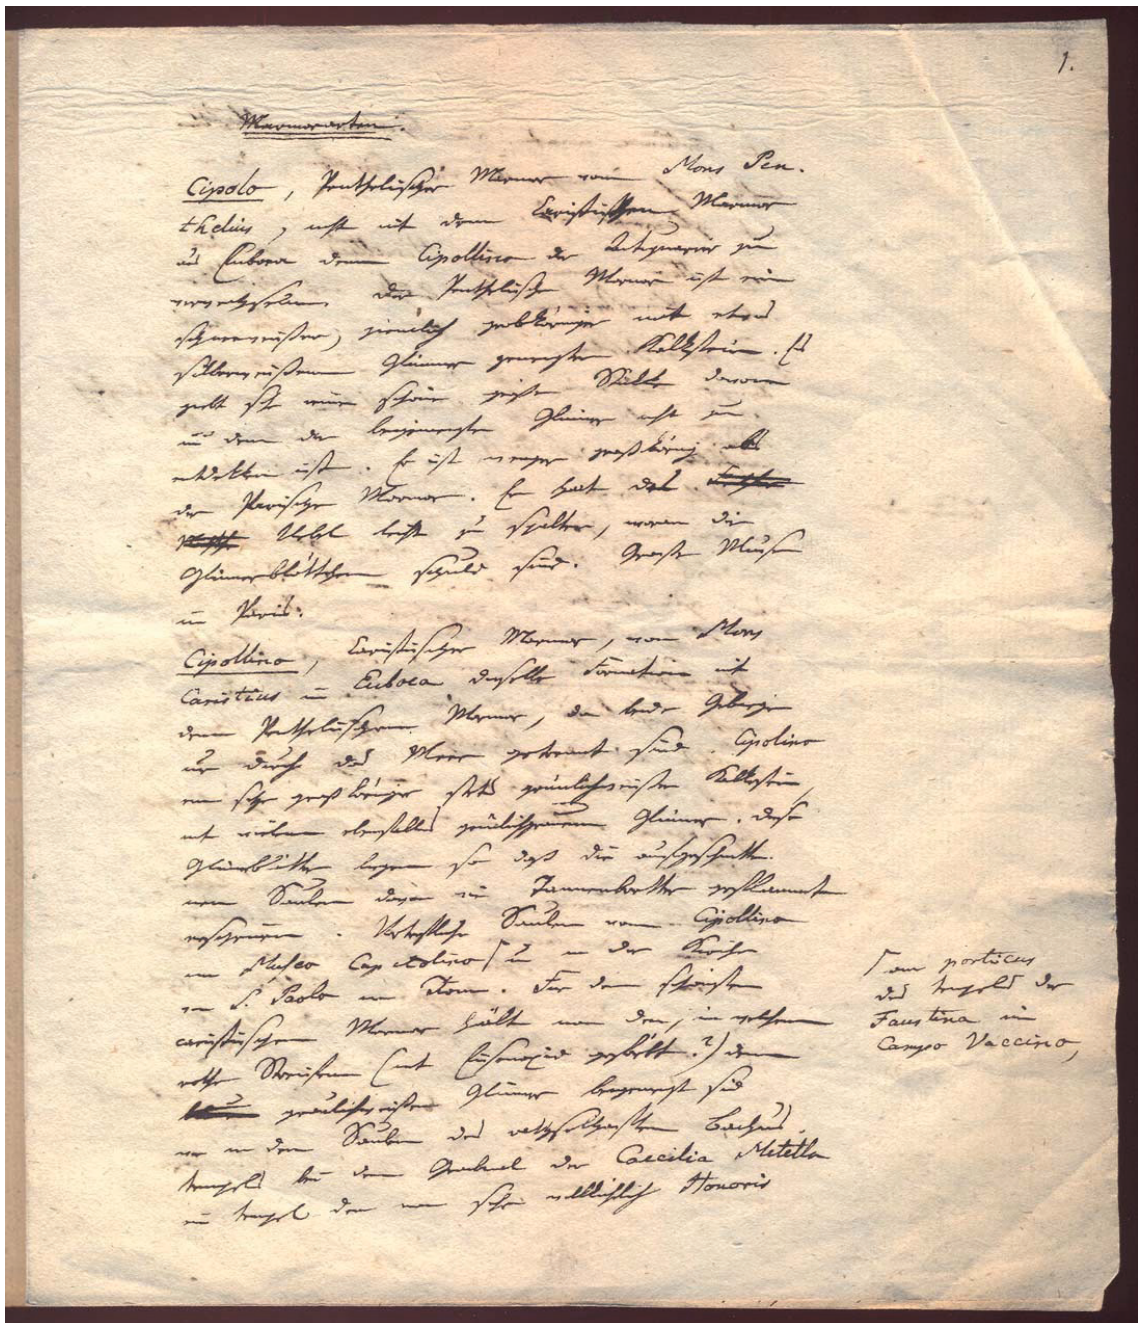 1.
Marmorarten.
Cipolo, Penthelischer Marmor vom Mons Pen-
thelius, nicht mit dem Caristischen Marmor
aus Euboea dem Cipollino der Antiquarier zu
verwechseln. Der Penthelische Marmor ist ein
schneeweißer, ziemlich grobkörniger mit etwas
silberweißem Glimmer gemengter Kalkstein. Es
giebt sehr schöne große Stükke davon
in denen der beigemengte Glimmer nicht zu
entdekken ist. Er ist weniger großkörnig als
der Parische Marmor. Er hat das
Uebel leicht zu spalten, woran die
Glimmerblättchen schuld sind. Musen
in Paris.
Cipollino, Caristischer Marmor, vom Mons
Caristius in Euboea dieselbe Formation mit
dem Penthelischen Marmor, da beide Gebirge
nur durch das Meer getrennt sind. Cipolino
ein sehr großkörniger stets grünlichweißer Kalkstein,
mit vielem ebenfalls grünlichgrauem Glimmer. Diese
Glimerblätter liegen so daß die ausgeschnitte-
nen Säulen davon wie Tannenbretter geflammt
erscheinen. Vortrefliche Säulen von Cipollino
im Museo Capitolino ⌈ u in der Kirche
von S. Paolo in Rom. Für den schönsten
caristischen Marmor hält man den, in welchem
rothe Streifen (mit Eisenoxid gefärbt?) dem
graulichweißen Glimmer beigemengt sind
wie in den Säulen des räthselhaften Bachus-
tempels bei dem Grabmal der Caecilia Metella
im tempel den man sehr willkührlich Honoris
⌈ am porticus
des tempels der
Faustina im
Campo Vaccino,